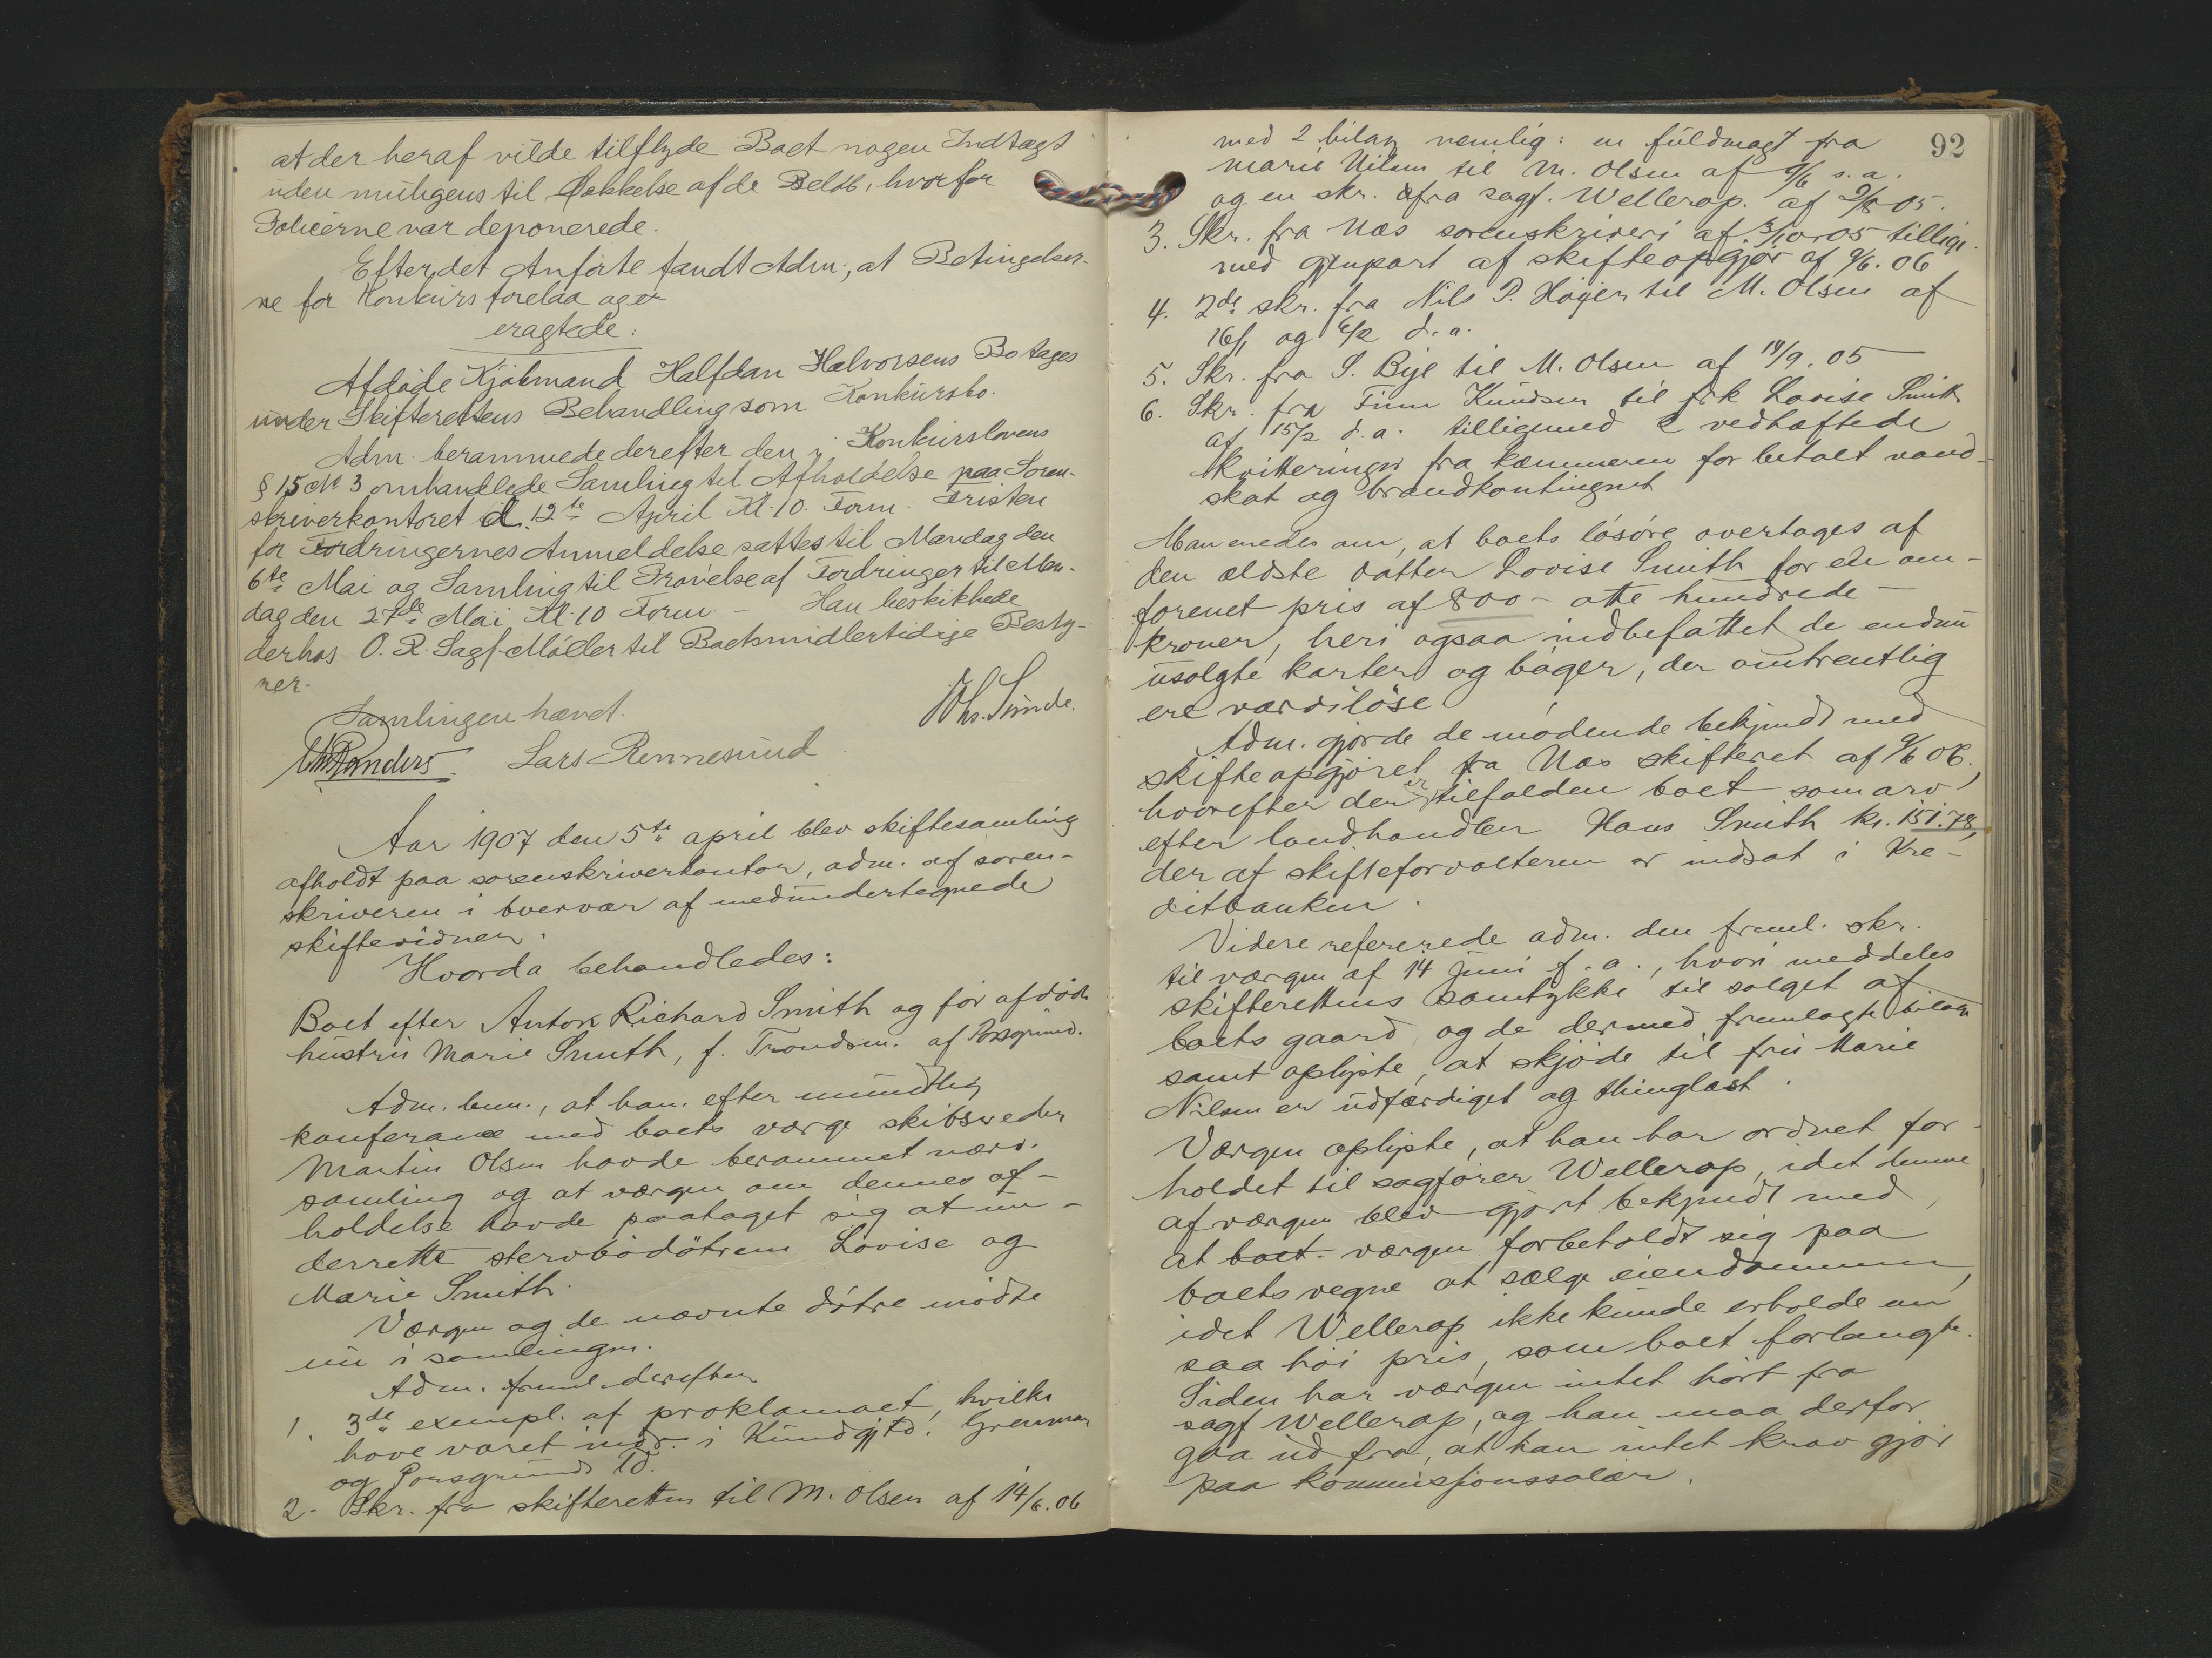 at der heraf vilde tilflyde Boet nogen Indtægt
uden muligens til Dækkelse af de Beløb, hvorfor
Policerne var deponerede.
Efter det Anførte fandt Adm., at Betingelser-
ne for Konkurs forelaa og er
eragtede:
Afdøde Kjøbmand Halfdan Halvorsens Bo tages
under Skifterettens Behandling som Konkursbo.
Adm. berammede derefter den i Konkurslovens
§ 15 No 3 omhandlede Samling til Afholdelse paa Soren-
skriverkontoret d. 12te April Kl. 10 Form. Fristen
for Fordringernes Anmeldelse sattes til Mandag den
6te Mai og Samling til Prøvelse af Fordringer til Man-
dag den 27de Mai Kl. 10 Form. – Han beskikkede
derhos O. R. Sagf. Møller til Boets midlertidige Besty-
rer.
Samlingen hævet.
Chs. Sunde.
Lars Rennesund
Aar 1907 den 5te april blev skiftesamling
afholdt paa sorenskriverkontor, adm. af soren-
skriveren i overvær af medundertegnede
skiftevidner.
Hvorda behandledes:
Boet efter Anton Richard Smith og før afdøde
hustru Marie Smith, f. Trondsen. af Porsgrund.
Adm. bem., at han efter mundtlig
konferance med boets værge skibsreder
Martin Olsen havde berammet nærv.
samling og at værgen om dennes af-
holdelse havde paataget sig at un-
derrette stervbodøtrene Lovise og
Marie Smith.
Værgen og de nævnte døtre mødte
nu i samlingen.
Adm. freml. derefter
1. 3de exempl. af proklamaet, hvilke
have været indr. i Kundgjtd. Grenmar
og Porsgrunds Td.
2. Skr. fra skifteretten til M. Olsen af 14/6. 06
92
med 2 bilag nemlig: en fuldmagt fra
Marie Nilsen til M. Olsen af 9/6 s. a.
og en skr. fra sagf. Wellerop. af 9/8 05.
3. Skr. fra Næs sorenskriveri af 3/10 05 tillige
med gjenpart af skifteopgjør af 9/6. 06
4. 2de skr. fra Nils P. Høyer til M. Olsen af
16/1 og 6/2 d. a.
5. Skr. fra S. Bye til M. Olsen af 14/9. 05
6. Skr. fra Finn Knudsen til frk Lovise Smith
af 15/2 d. a. tilligemed 2 vedhæftede
kvitteringer fra kæmneren for betalt vand-
skat og brandkontingent
Man enedes om, at boets løsøre overtages af
den ældste datter Lovise Smith for en om-
forenet pris af 800 – otte hundrede –
kroner, heri ogsaa indbefattet de endnu
usolgte karter og bøger, der omtrentlig
ere værdiløse
Adm. gjorde de mødende bekjendt med
skifteopgjøret fra Næs skifteret af 9/6 06.,
hvorefter der er tilfalden boet som arv
efter landhandler Hans Smith kr. 151.78,
der af skifteforvalteren er indsat i Kre-
ditbanken.
Videre refererede adm. den freml. skr.
til værgen af 14 juni f. a., hvori meddeles
skifterettens samtykke til salget af
boets gaard, og de dermed fremlagte bilag
samt oplyste, at skjøde til fru Marie
Nilsen er udfærdiget og thinglæst.
Værgen oplyste, at han har ordnet for-
holdet til sagfører Wellerop, idet denne
af værgen blev gjort bekjendt med,
at boet- værgen forbeholdt sig paa
boets vegne at sælge eiendommen,
idet Wellerop ikke kunde erholde en
saa høi pris, som boet forlangte.
Siden har værgen intet hørt fra
sagf Wellerop, og han maa derfor
gaa ud fra, at han intet krav gjør
paa kommisjonssalær.